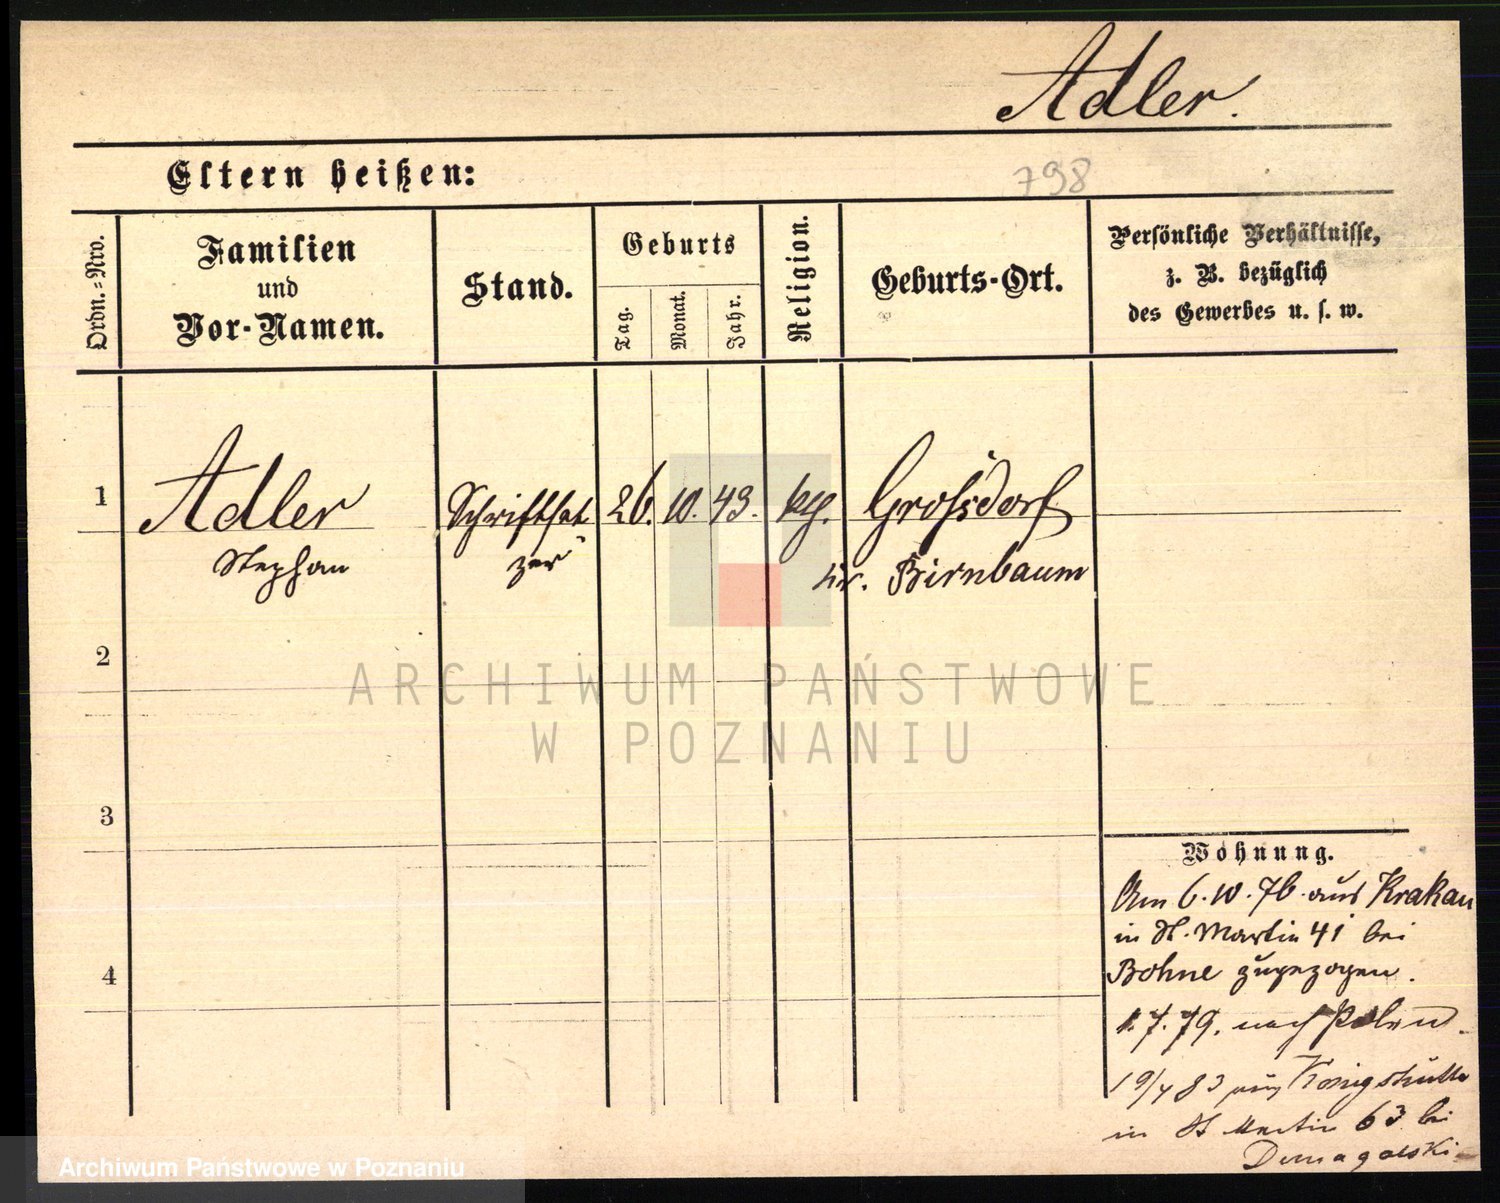 Adler.
Eltern heißen:
798
Ordn.-Nro.
Familien
und
Vor-Namen.
Stand.
Geburts
Tag.
Monat.
Jahr.
Religion.
Geburts-Ort.
Persönliche Verhältnisse,
z. B. bezüglich
des Gewerbes u. s. w.
1
Adler
Stephan
Schriftset
zer
26.
10.
43.
kg.
Grossdorf
kr. Birnbaum
2
3
4
Wohnung.
Am 6.10.76. aus Krakau
in St. Martin 41 bei
Bohne zugezogen.
1.7.79. nach Polen.
19/4 83 aus Königshütte
in St Martin 63 bei
Domagalski
ARCHIWUM PAŃSTWOWE
W POZNANIU
Archiwum Państwowe w Poznaniu